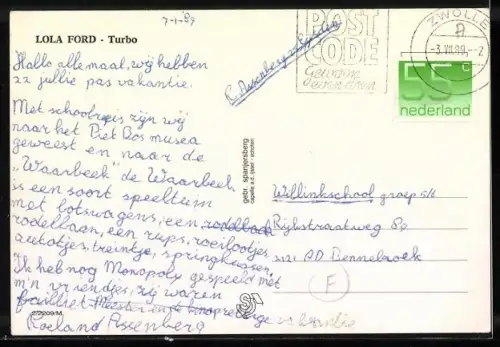 7-1-89
LOLA FORD - Turbo
POST
CODE
Gewoon
even doen
ZWOLLE
-3.VII.89.-2
55
nederland
Hallo allemaal, wij hebben
22 jullie pas vakantie.
Met schoolreis zijn wij
naar het Piet Bos musea
geweest en naar de
"Waarbeek" de Waarbeek
is een soort speeltuin
met botswagens, een rodelbaan
rodelbaan, een rups, roeibootjes
autootjes, treintje, springkussen,
Ik heb nog Monopoly gespeeld met
m'n vriendjes, wij waren
failliet
Roeland Assenberg
R. Assenberg
gebr. spanjersberg
Willinkschool groep 5/6
Rijkstraatweg 8p
2121 AD Bennebroek
F